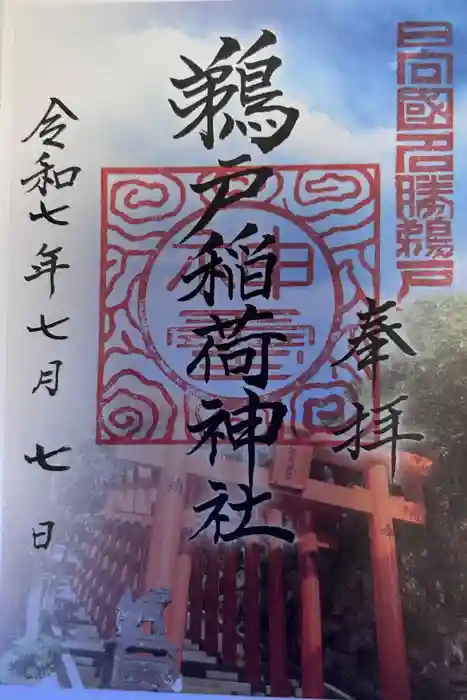 日向國名勝鵜戸
奉拝
鵜戸稲荷神社
令和七年七月七日